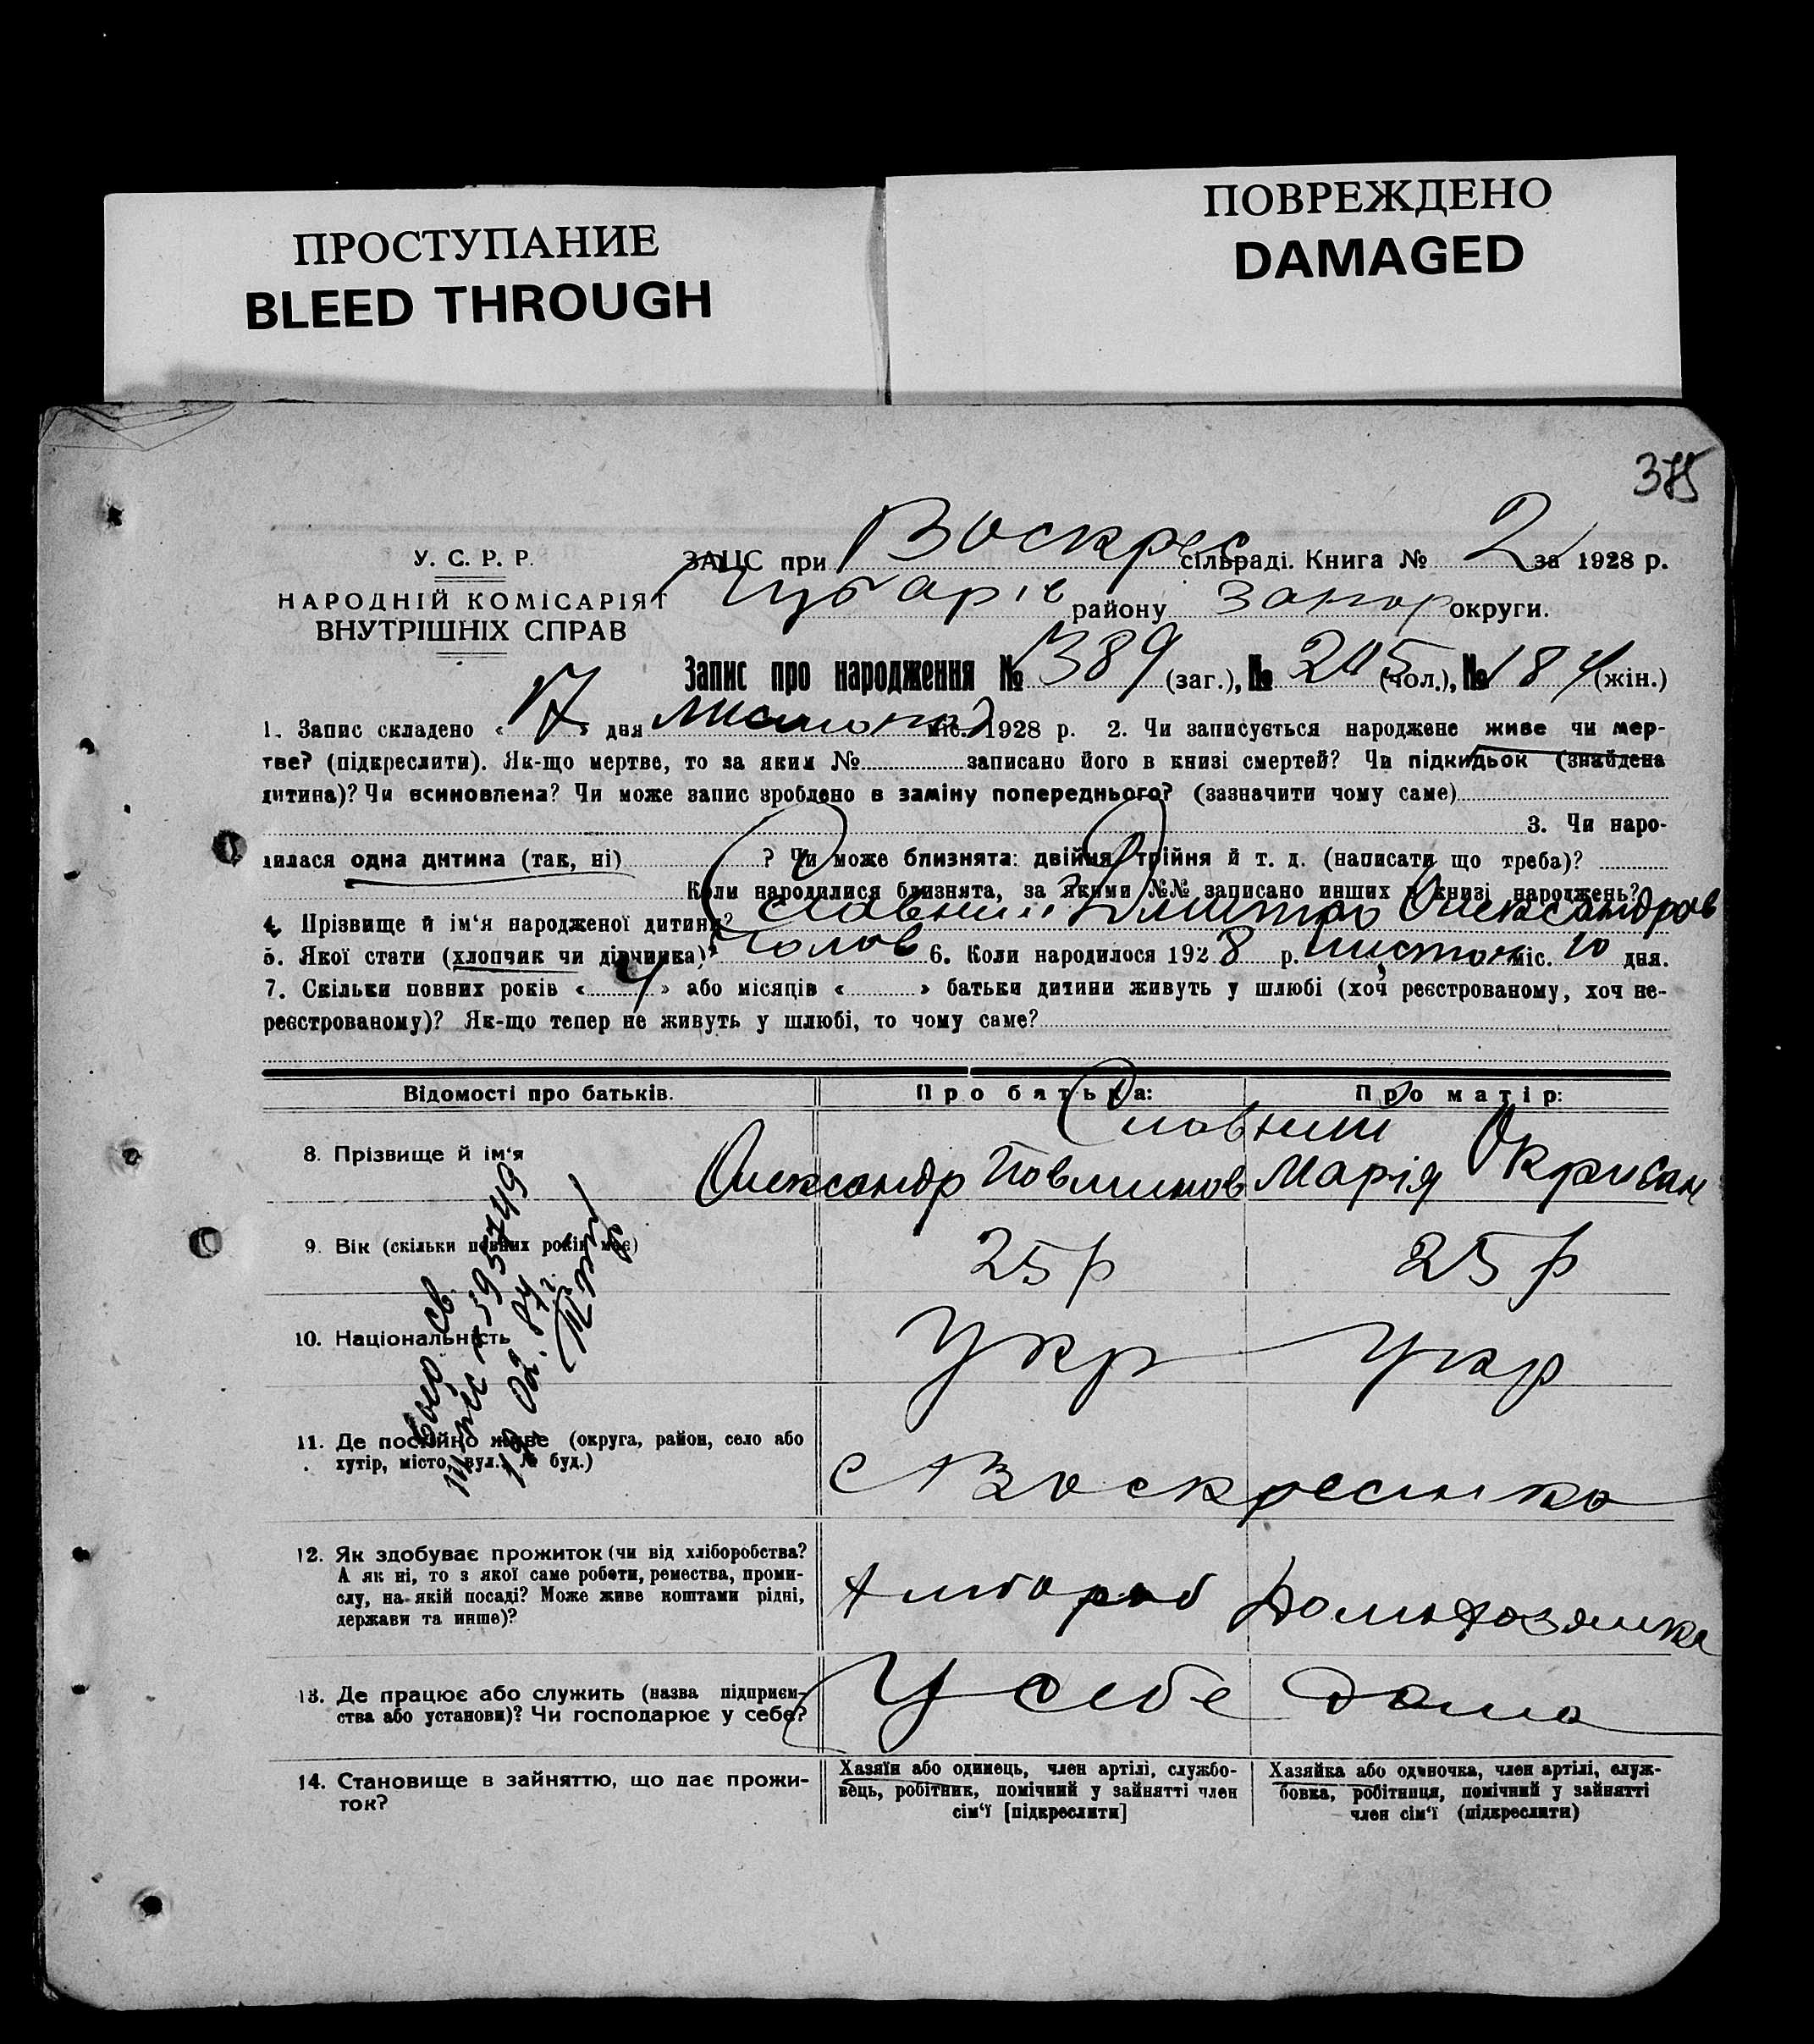 ПРОСТУПАНИЕ
BLEED THROUGH
ПОВРЕЖДЕНО
DAMAGED
375
У. С. Р. Р.
НАРОДНІЙ КОМІСАРІЯТ
ВНУТРІШНІХ СПРАВ
ЗАЦС при Воскрес сільраді. Книга № 2 за 1928 р.
Чубарів району Запор округи.
Запис про народження № 389 (заг.), № 205 (чол.), № 184 (жін.)
1. Запис складено « 17 » дня листопад міс. 1928 р. 2. Чи записується народжене живе чи мер-
тве? (підкреслити). Як-що мертве, то за яким № записано його в книзі смертей? Чи підкидьок (знайдена
дитина)? Чи всиновлена? Чи може запис зроблено в заміну попереднього? (зазначити чому саме)
3. Чи наро-
дилася одна дитина (так, ні) ? Чи може близнята: двійня, трійня й т. д. (написати що треба)?
Коли народилися близнята, за якими №№ записано инших в книзі народжень?
4. Прізвище й ім'я народженої дитини? Славний Дмитро Олександров
5. Якої стати (хлопчик чи дівчинка)? чолов 6. Коли народилося 1928 р. листоп міс. 10 дня.
7. Скільки повних років « 4 » або місяців « » батьки дитини живуть у шлюбі (хоч реєстрованому, хоч не-
реєстрованому)? Як-що тепер не живуть у шлюбі, то чому саме?
Відомості про батьків. Про батька: Про матір:
Славний
8. Прізвище й ім'я Олександр Марія
9. Вік (скільки повних років має) 25 р 25 р
10. Національність Укр Укр
11. Де постійно живе (округа, район, село або
хутір, місто, вул., № буд.)
с Воскресинка
12. Як здобуває прожиток (чи від хліборобства?
А як ні, то з якої саме роботи, ремества, проми-
слу, на якій посаді? Може живе коштами рідні,
держави та инше)?
Хлібороб Домохозяйка
13. Де працює або служить (назва підприєм-
ства або установи)? Чи господарює у себе?
У себе дома
14. Становище в зайняттю, що дає прожи-
ток?
Хазяїн або одинець, член артілі, службо-
вець, робітник, помічний у зайнятті член
сім'ї [підкреслити]
Хазяйка або одиночка, член артілі, служ-
бовка, робітниця, помічний у зайнятті
член сім'ї (підкреслити)